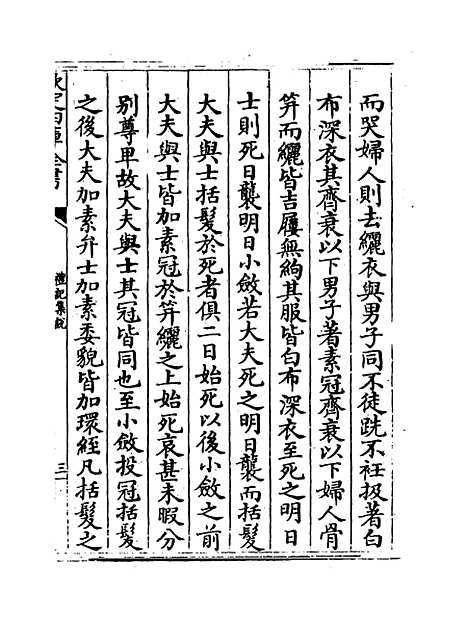 而哭婦人則去纚衣與男子同不徒跣不衽扱著白
布深衣其齊衰以下男子著素冠齊衰以下婦人骨
笄而纚皆吉屨無絇其服皆白布深衣至死之明日
士則死日襲明日小斂若大夫死之明日襲而括髮
大夫與士括髮於死者俱二日始死以後小斂之前
大夫與士皆加素冠於笄纚之上始死哀甚未暇分
別尊卑故大夫與士其冠皆同也至小斂投冠括髮
之後大夫加素弁士加素委貌皆加環絰凡括髮之
欽定四庫全書
禮記集說
三